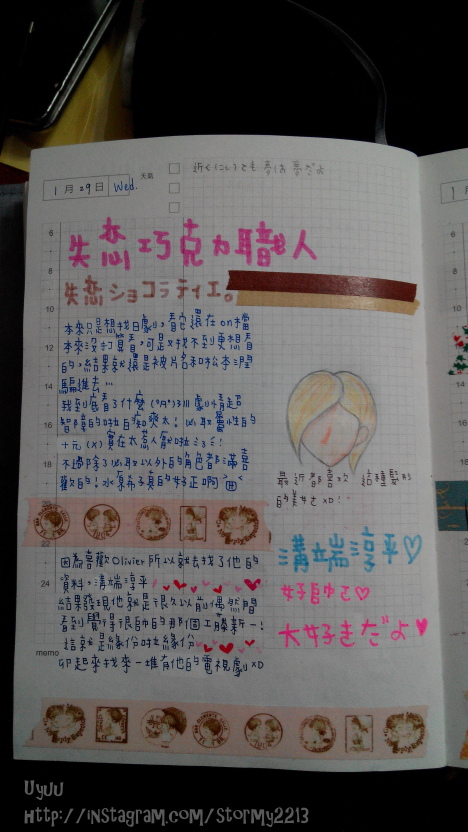 1月29日 Wed. 天気
近くにいても 夢は 夢だよ
失恋巧克力職人
失恋ショコラティエ。
本來只是想找日劇,看它還在on檔
本來沒打算看,可是又找不到更想看
的,結果就還是被片名和松本潤
騙進去...
我到底看了什麼(ﾟДﾟ)川劇情超
智障的啦
實在太惹人會啦
不過除了以外的角色都滿喜
歡的!水原希子真的好正啊
最近都喜欢 這種髮形
的美女 XD!
因為喜歡Olivier所以就去找了他的
資料,溝端淳平
結果發現他就是很久以前偶然間
看到覺得很帥的那個工藤新一!
這就是緣份啦緣份
卯起來找來一堆有他的電視劇XD
溝端淳平♡
好帥さ♡
大好きだよ♥
6
8
10
12
14
16
18
22
24
memo
1月
8
10
12
14
16
18
Uyuu
http://instagram.com/stormy2213